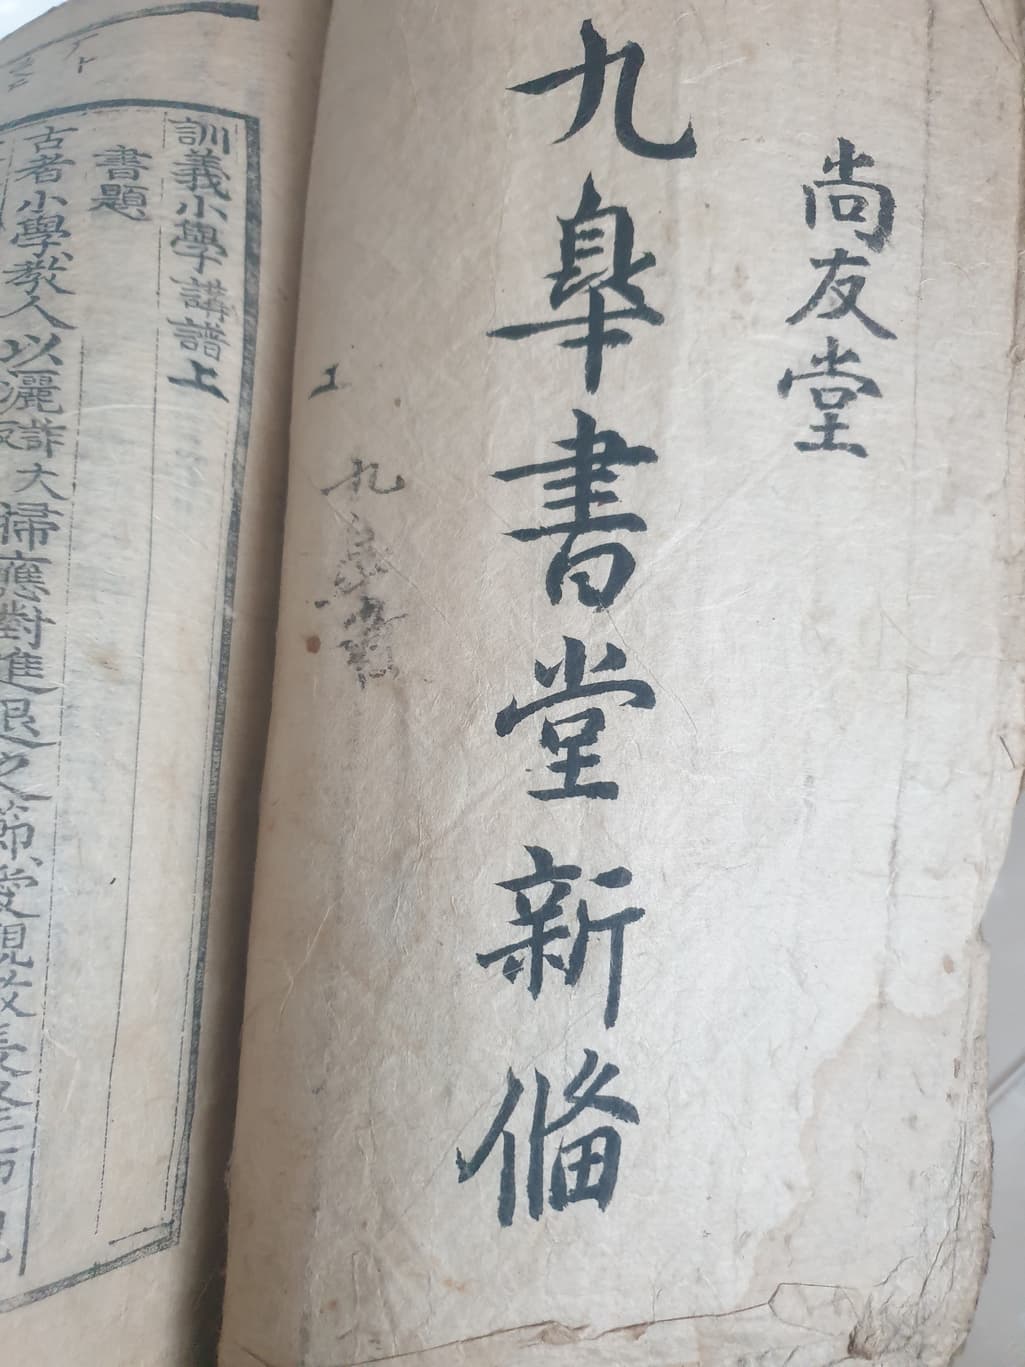 尚友堂
九皐書堂新備
九
訓義小學講譜上
書題
古者小學教人以灑掃應對進退之節愛親敬長